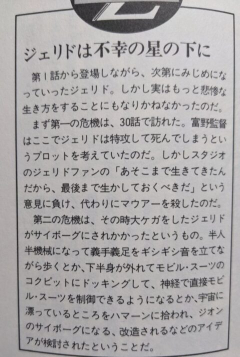 Z
ジェリドは不幸の星の下に
第１話から登場しながら、次第にみじめにな
っていったジェリド。しかし実はもっと悲惨な
生き方をすることにもなりかねなかったのだ。
まず第一の危機は、30話で訪れた。富野監督
はここでジェリドは特攻して死んでしまうとい
うプロットを考えていたのだ。しかしスタジオ
のジェリドファンの「あそこまで生きてきたん
だから、最後まで生かしておくべきだ」という
意見に負け、代わりにマウアーを殺したのだ。
第二の危機は、その時大ケガをしたジェリド
がサイボーグにされかかったというもの。半人
半機械になって義手義足をギシギシ音を立てな
がら歩くとか、下半身が外れてモビル・スーツの
コクピットにドッキングして、神経で直接モビ
ル・スーツを制御できるようになるとか、宇宙に
漂っているところをハマーンに拾われ、ジオン
のサイボーグになる、改造されるなどのアイデ
アが検討されたということだ。